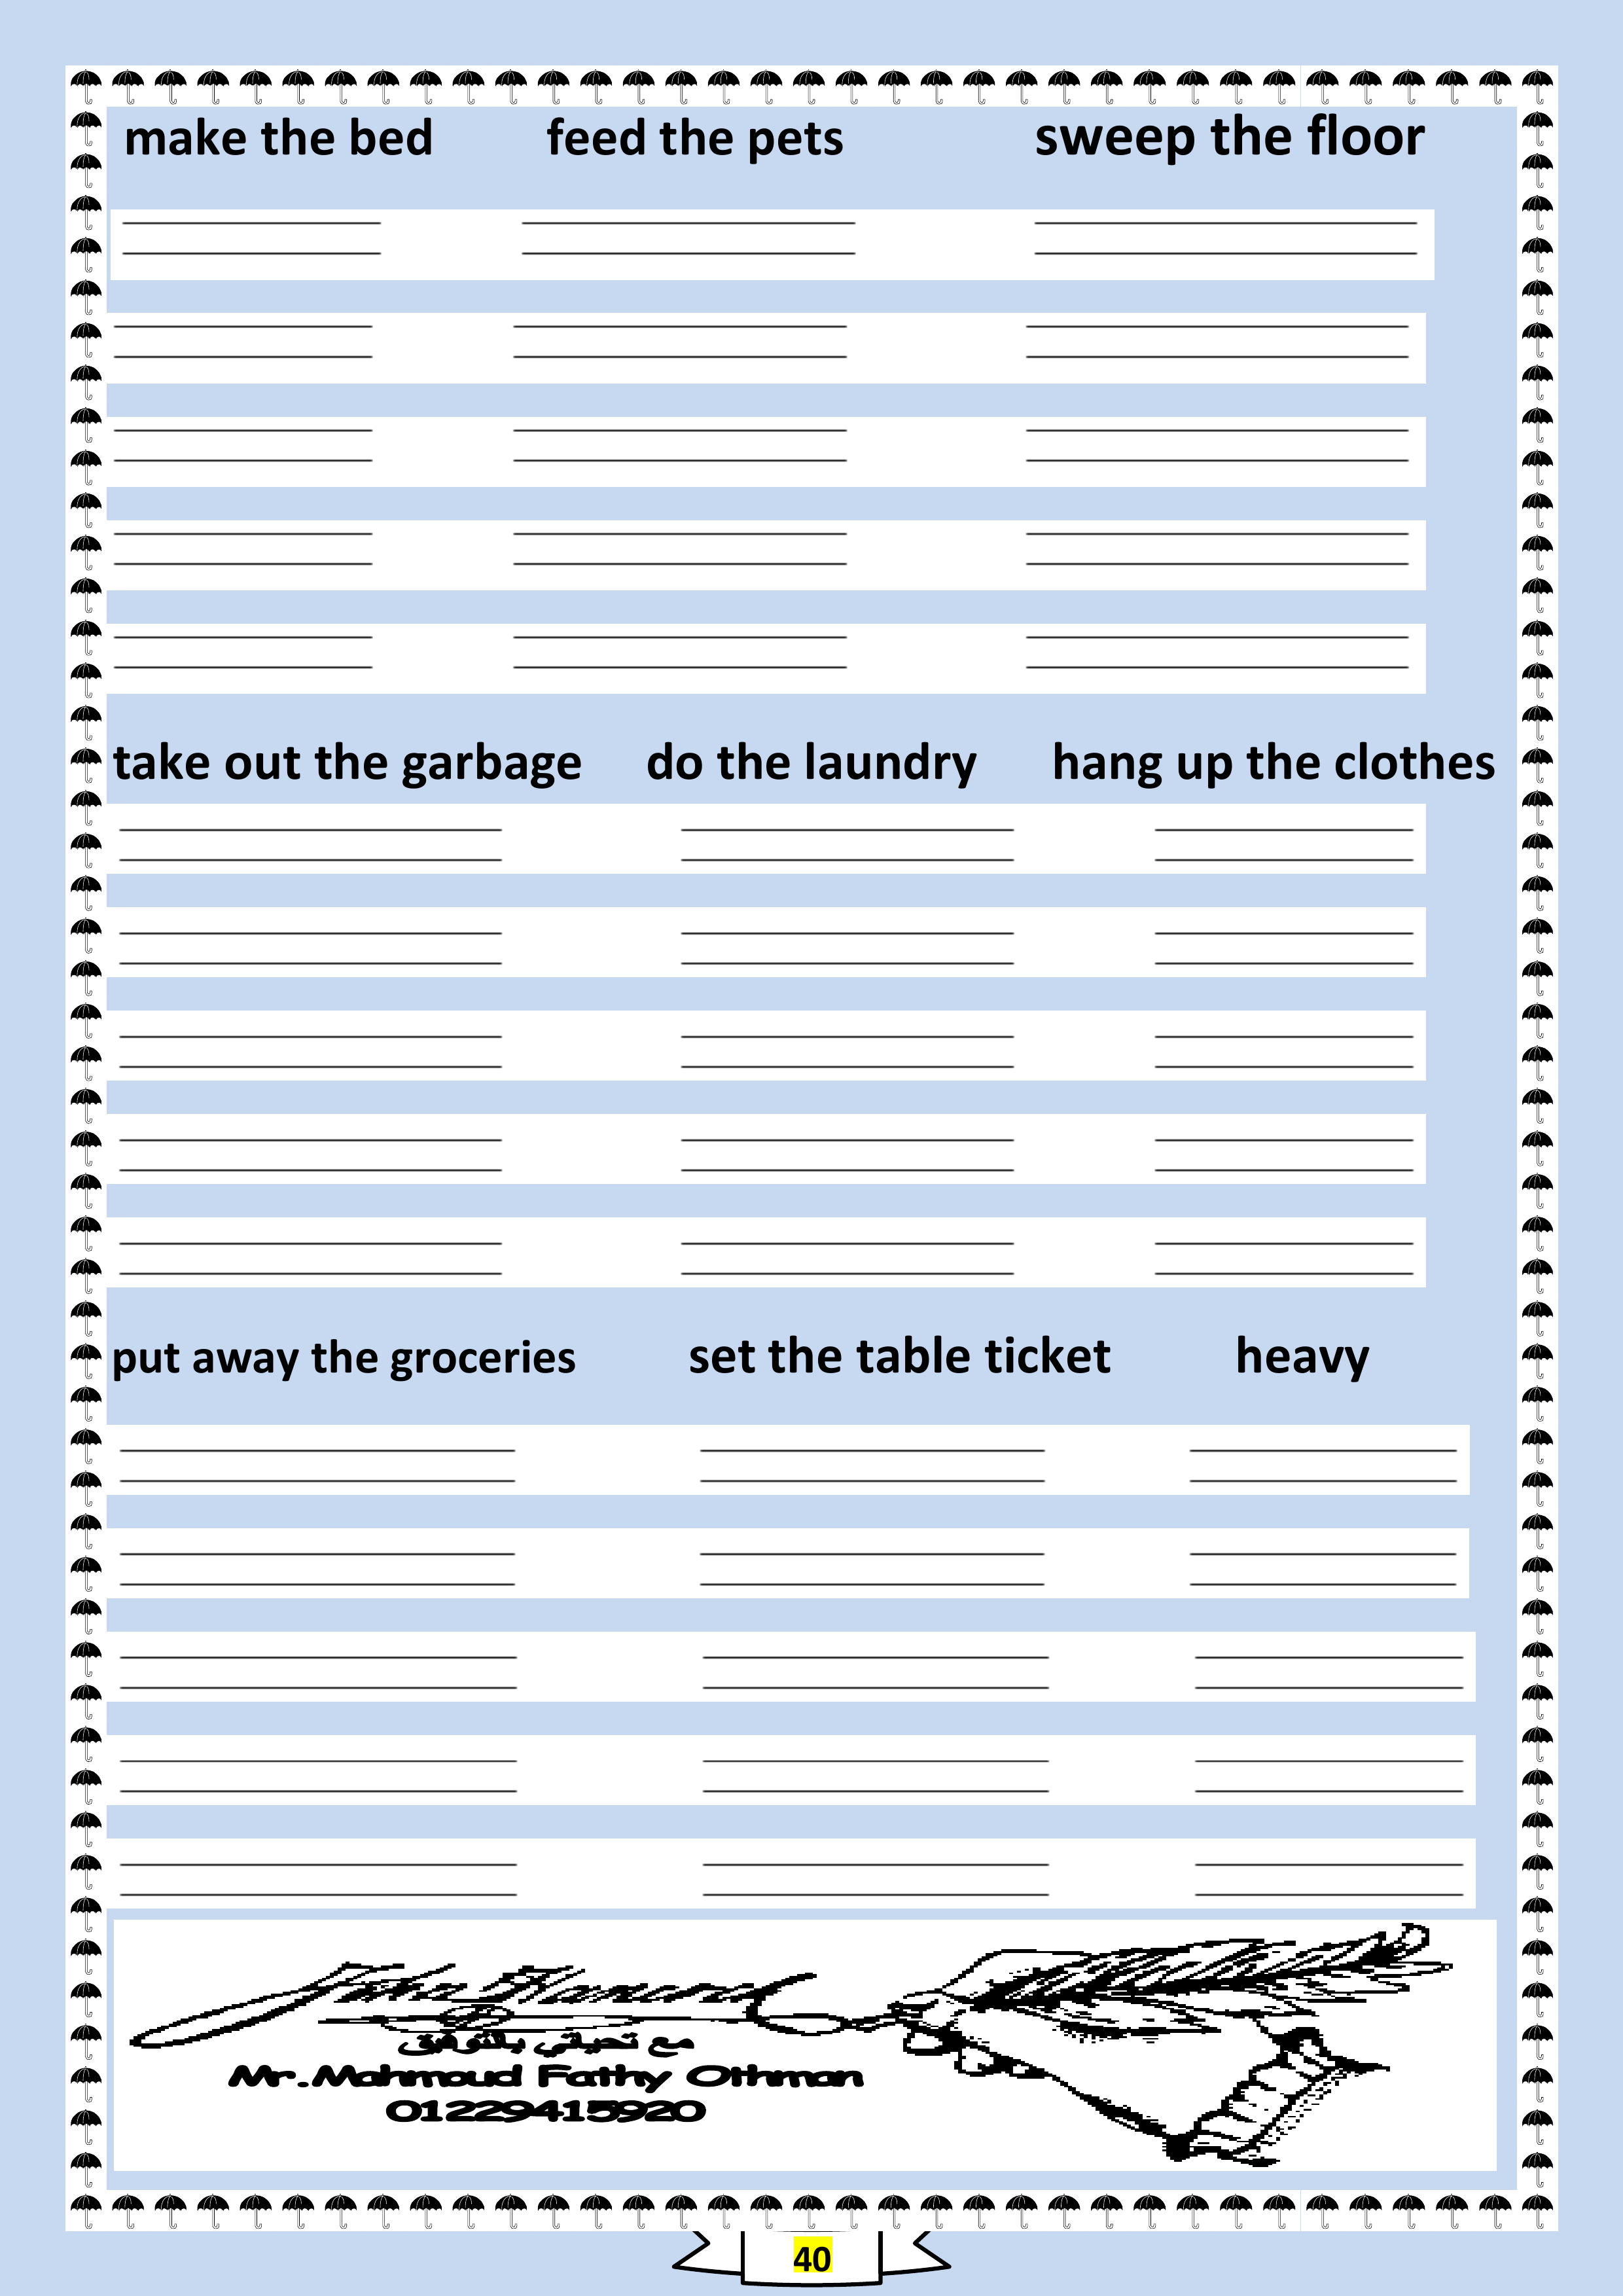 make the bed feed the pets sweep the floor
take out the garbage do the laundry hang up the clothes
put away the groceries set the table ticket heavy
مع تحياتي بالتوفيق
Mr.Mahmoud Fathy Othman
01229415920
40